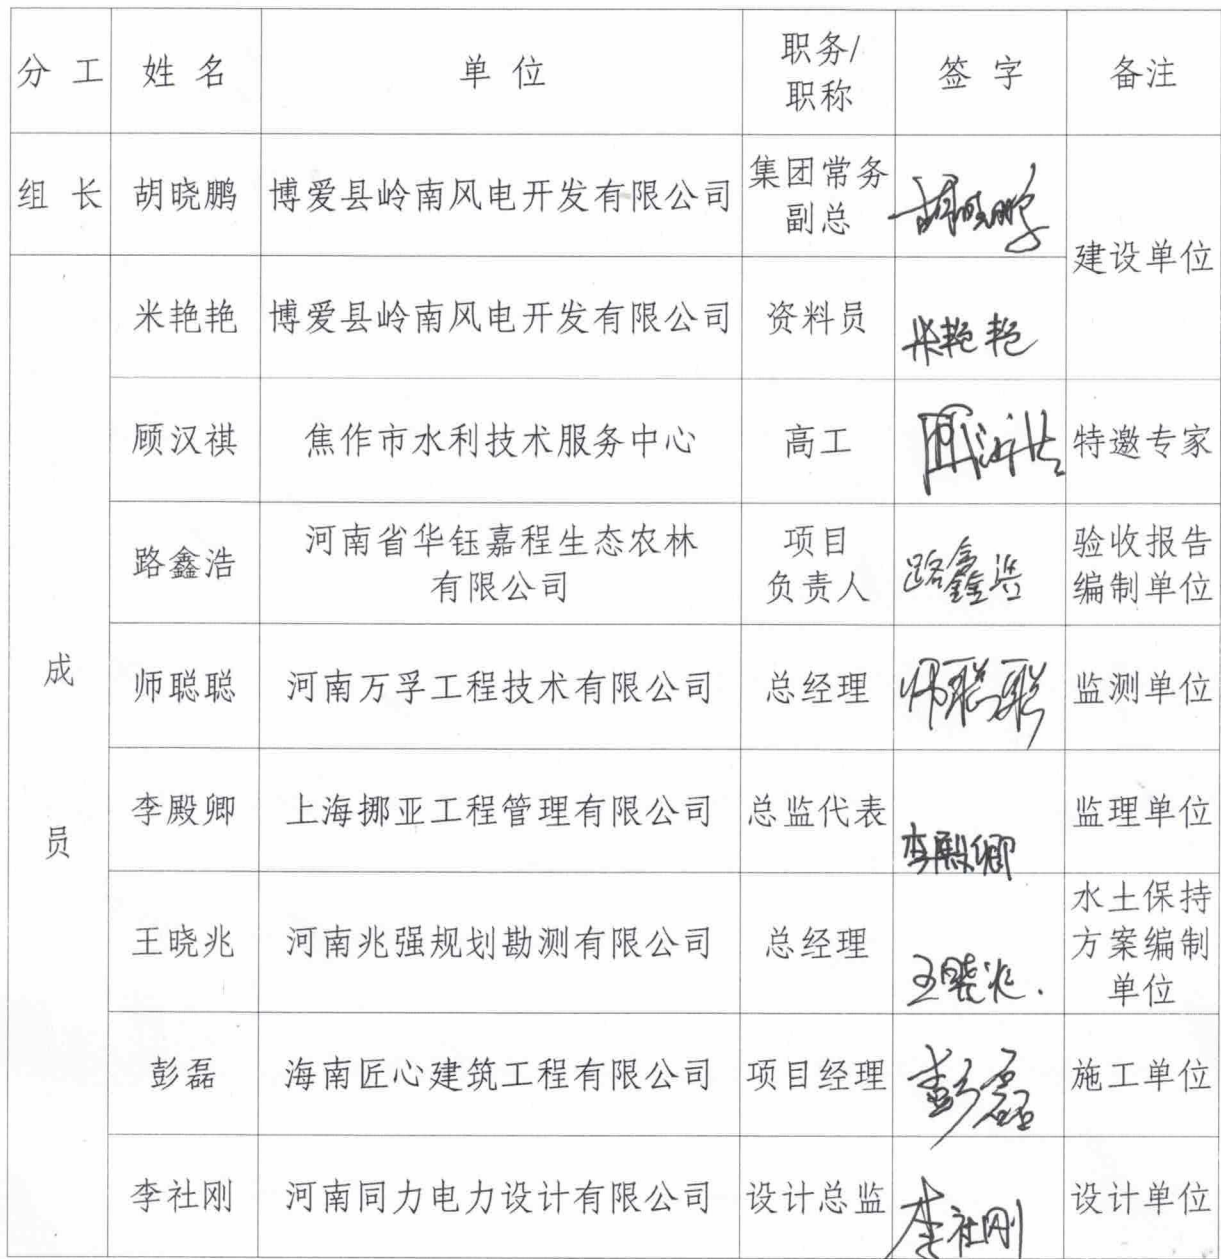 分工 姓名 单位 职务/职称 签字 备注
组长 胡晓鹏 博爱县岭南风电开发有限公司 集团常务副总 胡晓鹏 建设单位
成员 米艳艳 博爱县岭南风电开发有限公司 资料员 米艳艳
顾汉祺 焦作市水利技术服务中心 高工 特邀专家
路鑫浩 河南省华钰嘉程生态农林有限公司 项目负责人 路鑫浩 验收报告编制单位
师聪聪 河南万孚工程技术有限公司 总经理 师聪聪 监测单位
李殿卿 上海挪亚工程管理有限公司 总监代表 李殿卿 监理单位
王晓兆 河南兆强规划勘测有限公司 总经理 王晓兆. 水土保持方案编制单位
彭磊 海南匠心建筑工程有限公司 项目经理 彭磊 施工单位
李社刚 河南同力电力设计有限公司 设计总监 李社刚 设计单位